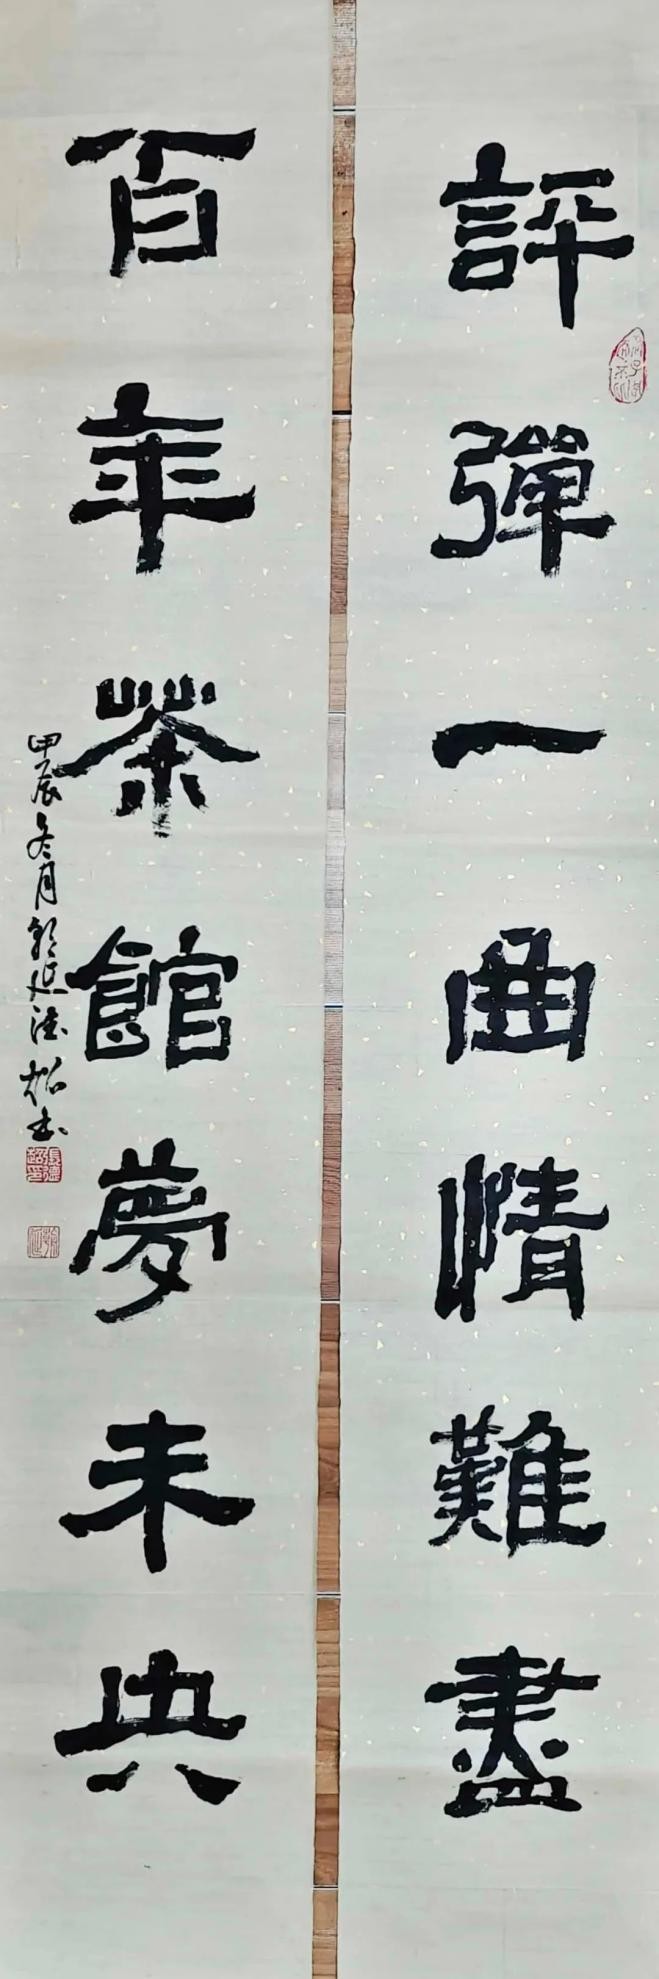 評彈一曲情難盡
百年茶館夢未央
甲辰冬月